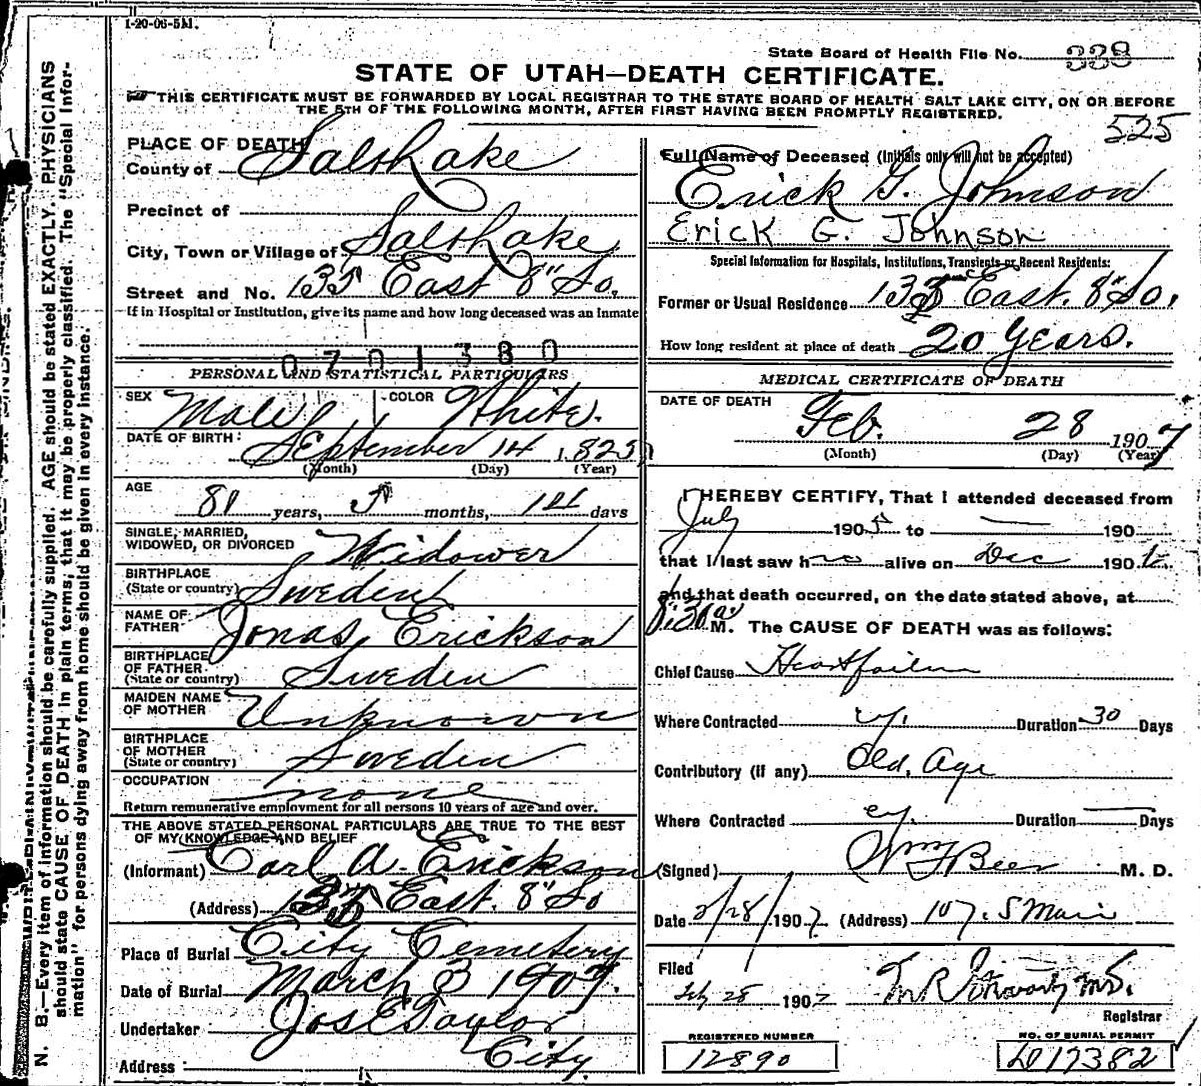 1-20-06-5M.
State Board of Health File No. 338
STATE OF UTAH—DEATH CERTIFICATE.
THIS CERTIFICATE MUST BE FORWARDED BY LOCAL REGISTRAR TO THE STATE BOARD OF HEALTH SALT LAKE CITY, ON OR BEFORE
THE 5TH OF THE FOLLOWING MONTH, AFTER FIRST HAVING BEEN PROMPTLY REGISTERED.
525
PLACE OF DEATH
County of Salt Lake
Precinct of
City, Town or Village of Salt Lake
Street and No. 135 East 8" So.
If in Hospital or Institution, give its name and how long deceased was an Inmate
0701380
PERSONAL AND STATISTICAL PARTICULARS
SEX Male COLOR White.
DATE OF BIRTH: September 14 1825
(Month) (Day) (Year)
AGE 81 years, 5 months, 14 days
SINGLE, MARRIED,
WIDOWED, OR DIVORCED Widower
BIRTHPLACE
(State or country) Sweden
NAME OF
FATHER Jonas Erickson
BIRTHPLACE
OF FATHER
(State or country) Sweden
MAIDEN NAME
OF MOTHER Unknown
BIRTHPLACE
OF MOTHER
(State or country) Sweden
OCCUPATION none
Return remunerative employment for all persons 10 years of age and over.
THE ABOVE STATED PERSONAL PARTICULARS ARE TRUE TO THE BEST
OF MY KNOWLEDGE AND BELIEF
(Informant) Carl A. Erickson
(Address) 135 East. 8" So
Place of Burial City Cemetery
Date of Burial March 3 1907.
Undertaker Jos E Taylor
Address City.
Full Name of Deceased (Initials only will not be accepted)
Erick G. Johnson
Erick G. Johnson
Special Information for Hospitals, Institutions, Transients or Recent Residents:
Former or Usual Residence 135 East. 8" So.
How long resident at place of death 20 Years.
MEDICAL CERTIFICATE OF DEATH
DATE OF DEATH
Feb. 28 1907
(Month) (Day) (Year)
I HEREBY CERTIFY, That I attended deceased from
July 1905 to — 190
that I last saw h alive on Dec 190
and that death occurred, on the date stated above, at
8:30 a M. The CAUSE OF DEATH was as follows:
Chief Cause Heart failure
Where Contracted Duration 30 Days
Contributory (if any) Old Age
Where Contracted Duration — Days
(Signed) Wm F Beer M. D.
Date 2/28/1907 (Address) 107. S Main
Filed
Feb 28 1907
Registrar
REGISTERED NUMBER
12890
NO. OF BURIAL PERMIT
17382
N. B.—Every item of information should be carefully supplied. AGE should be stated EXACTLY. PHYSICIANS
should state CAUSE OF DEATH in plain terms, that it may be properly classified. The "Special Infor-
mation" for persons dying away from home should be given in every instance.